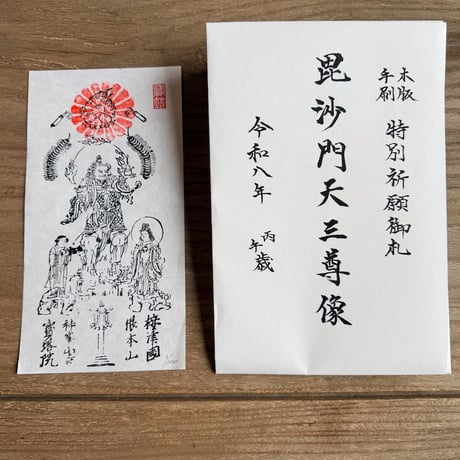 木版
手刷
特別祈願御札
毘沙門天三尊像
令和八年
丙
午歳
摂津國
根本山
神峯山寺
宝塔院